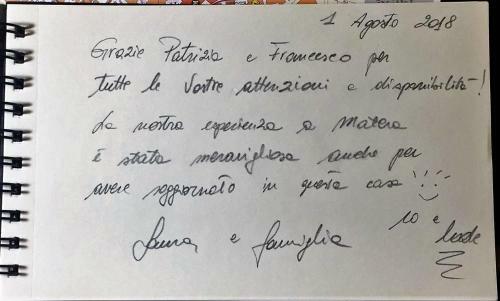 1 Agosto 2018
Grazie Patrizia e Francesco per
tutte le Vostre attenzioni e disponibilità!
La nostra esperienza a Matera
è stata meravigliosa anche per
avere soggiornato in questa casa
10 e lode
Laura e famiglia